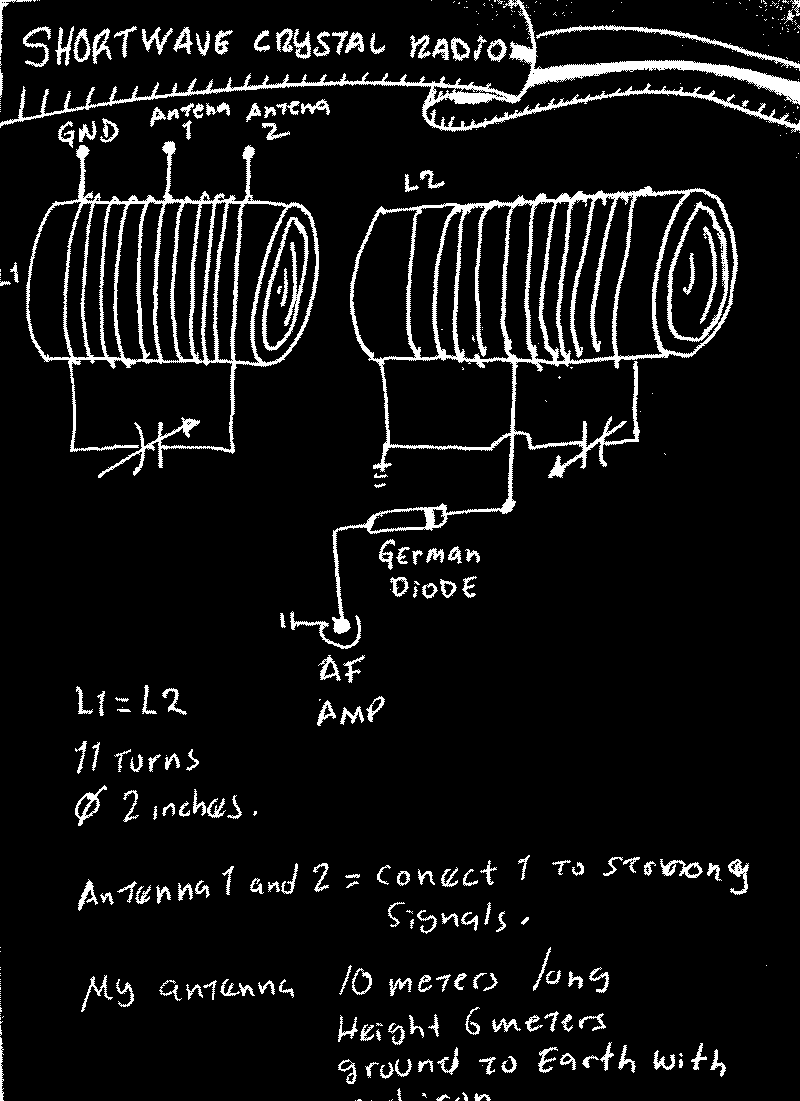 SHORTWAVE CRYSTAL RADIO
GND
Antena 1
Antena 2
L1
L2
German
Diode
AF
AMP
L1 = L2
11 Turns
Ø 2 inches.
Antenna 1 and 2 = Conect 1 to
Signals.
My antenna 10 meters long
Height 6 meters
ground to Earth with